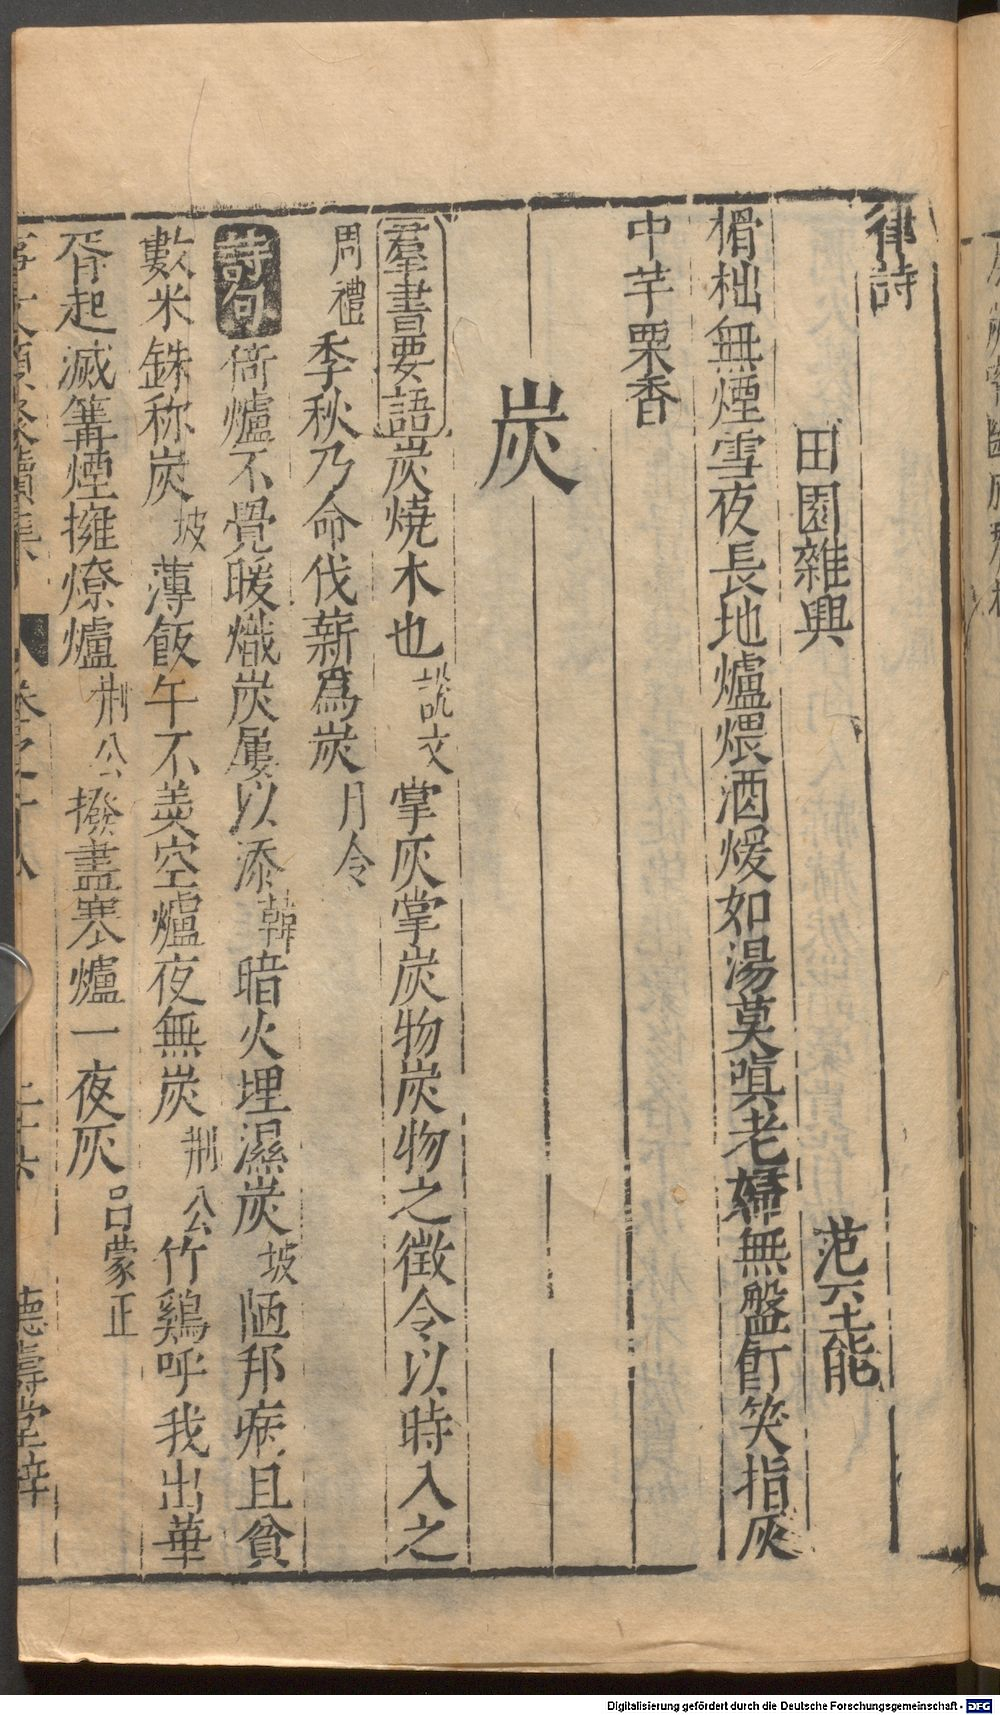 律詩
田園雜興 范至能
榾柮無煙雪夜長地爐煨酒煖如湯莫嗔老婦無盤飣笑指灰
中芋栗香
炭
羣書要語炭燒木也說文掌灰掌炭物炭物之徵令以時入之
周禮季秋乃命伐薪爲炭月令
詩句倚爐不覺暖熾炭屢以添韓暗火埋濕炭坡陋邦病且貧
數米銖称炭坡薄飯午不羨空爐夜無炭荆公竹鷄呼我出華
胥起滅篝煙擁燎爐荆公撥盡寒爐一夜灰呂蒙正
事文類聚續集 卷之十八 二十六 德壽堂梓
Digitalisierung gefördert durch die Deutsche Forschungsgemeinschaft - DFG